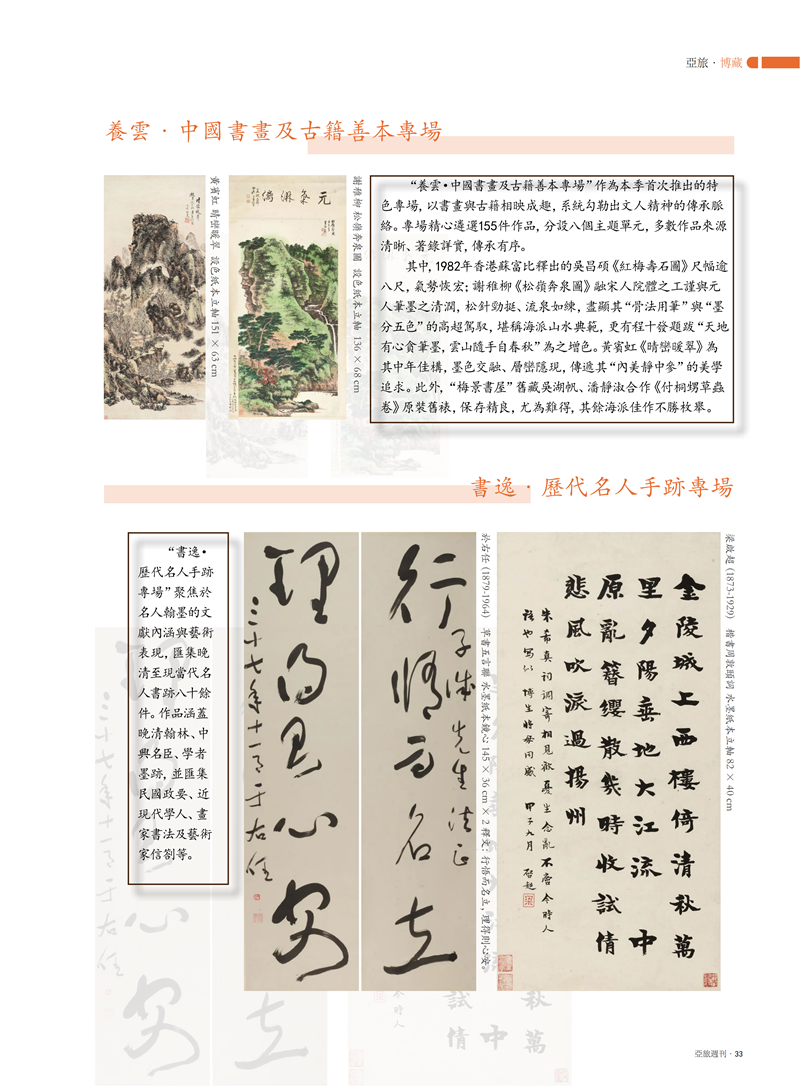 亞旅·博藏
養雲·中國書畫及古籍善本專場
黃賓虹 晴巒暖翠 設色紙本立軸 151 × 63 cm
元氣淋漓
謝稚柳 松嶺奔泉圖 設色紙本立軸 136 × 68 cm
“養雲•中國書畫及古籍善本專場”作為本季首次推出的特
色專場，以書畫與古籍相映成趣，系統勾勒出文人精神的傳承脈
絡。專場精心遴選155件作品，分設八個主題單元，多數作品來源
清晰、著錄詳實，傳承有序。
其中，1982年香港蘇富比釋出的吳昌碩《紅梅壽石圖》尺幅逾
八尺，氣勢恢宏；謝稚柳《松嶺奔泉圖》融宋人院體之工謹與元
人筆墨之清潤，松針勁挺、流泉如練，盡顯其“骨法用筆”與“墨
分五色”的高超駕馭，堪稱海派山水典範，更有程十發題跋“天地
有心食筆墨，雲山隨手自春秋”為之增色。黃賓虹《晴巒暖翠》為
其中年佳構，墨色交融、層巒隱現，傳遞其“內美靜中參”的美學
追求。此外，“梅景書屋”舊藏吳湖帆、潘靜淑合作《付桐甥草蟲
卷》原裝舊裱，保存精良，尤為難得，其餘海派佳作不勝枚舉。
書逸·歷代名人手跡專場
“書逸•
歷代名人手跡
專場”聚焦於
名人翰墨的文
獻內涵與藝術
表現，匯集晚
清至現當代名
人書跡八十餘
件。作品涵蓋
晚清翰林、中
興名臣、學者
墨跡，並匯集
民國政要、近
現代學人、畫
家書法及藝術
家信劄等。
行悟而名立
子誠先生法正
理得則心安
三十七年十一月 于右任
於右任 (1879-1964) 草書五言聯 水墨紙本鏡心 145 × 36 cm × 2 釋文：行悟而名立，理得則心安。
金陵城上西樓倚清秋萬
里夕陽垂地大江流中
原亂簪纓散幾時收試倩
悲風吹淚過揚州
朱希真詞調寄相見歡憂生念亂不啻今時人
甲子九月 啓超
梁啟超 (1873-1929) 楷書周敦頤詞 水墨紙本立軸 82 × 40 cm
亞旅週刊·33